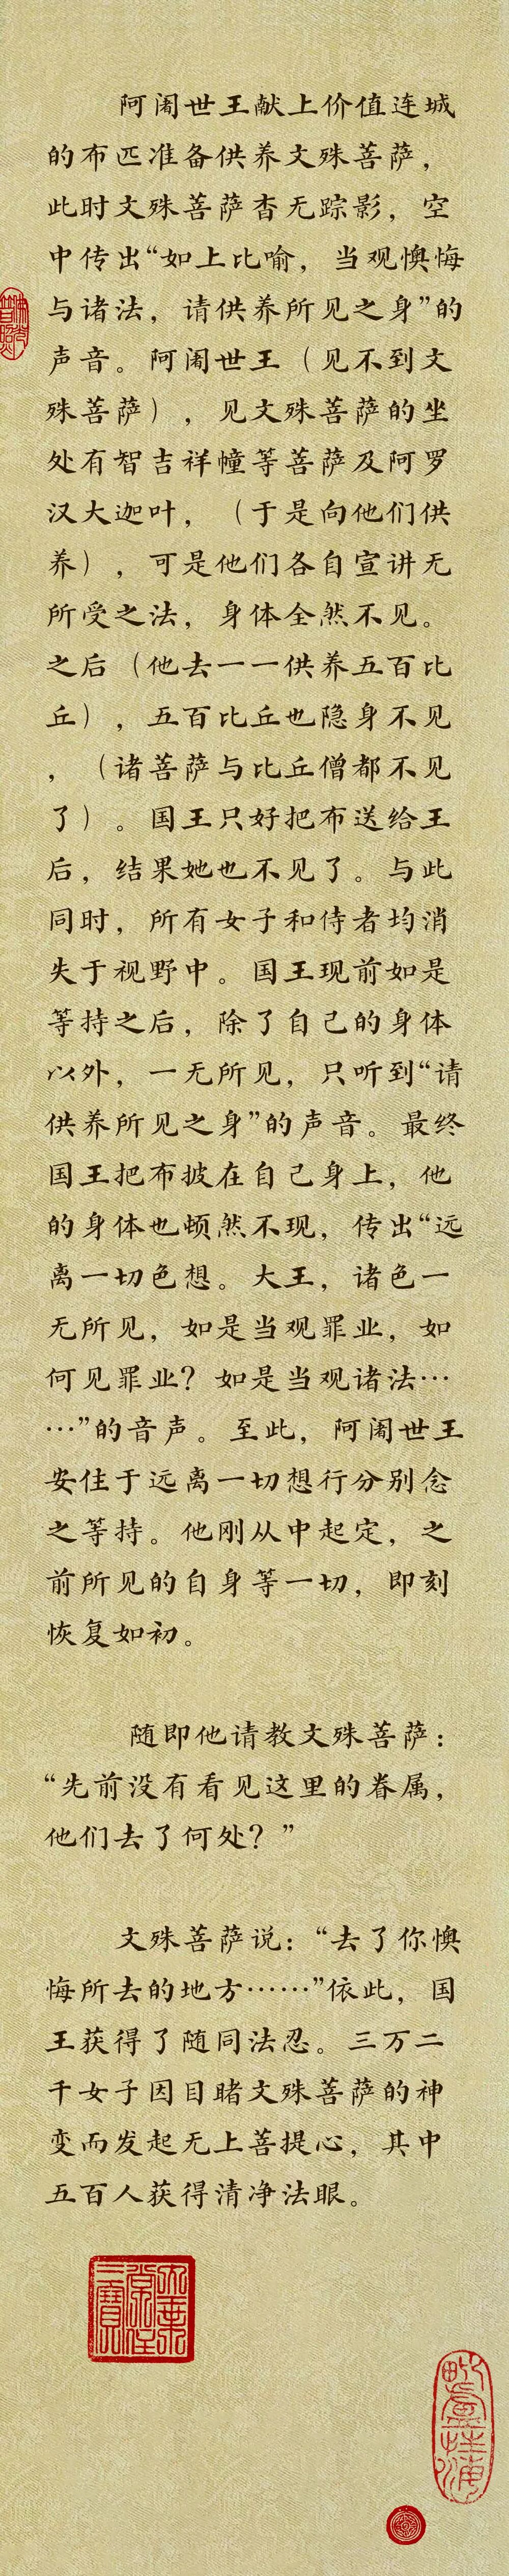 阿阇世王献上价值连城
的布匹准备供养文殊菩萨，
此时文殊菩萨杳无踪影，空
中传出“如上比喻，当观懊悔
与诸法，请供养所见之身”的
声音。阿阇世王（见不到文
殊菩萨），见文殊菩萨的坐
处有智吉祥幢等菩萨及阿罗
汉大迦叶，（于是向他们供
养），可是他们各自宣讲无
所受之法，身体全然不见。
之后（他去一一供养五百比
丘），五百比丘也隐身不见
，（诸菩萨与比丘僧都不见
了）。国王只好把布送给王
后，结果她也不见了。与此
同时，所有女子和侍者均消
失于视野中。国王现前如是
等持之后，除了自己的身体
以外，一无所见，只听到“请
供养所见之身”的声音。最终
国王把布披在自己身上，他
的身体也顿然不现，传出“远
离一切色想。大王，诸色一
无所见，如是当观罪业，如
何见罪业？如是当观诸法…
…”的音声。至此，阿阇世王
安住于远离一切想行分别念
之等持。他刚从中起定，之
前所见的自身等一切，即刻
恢复如初。
随即他请教文殊菩萨：
“先前没有看见这里的眷属，
他们去了何处？”
文殊菩萨说：“去了你懊
悔所去的地方……”依此，国
王获得了随同法忍。三万二
千女子因目睹文殊菩萨的神
变而发起无上菩提心，其中
五百人获得清净法眼。